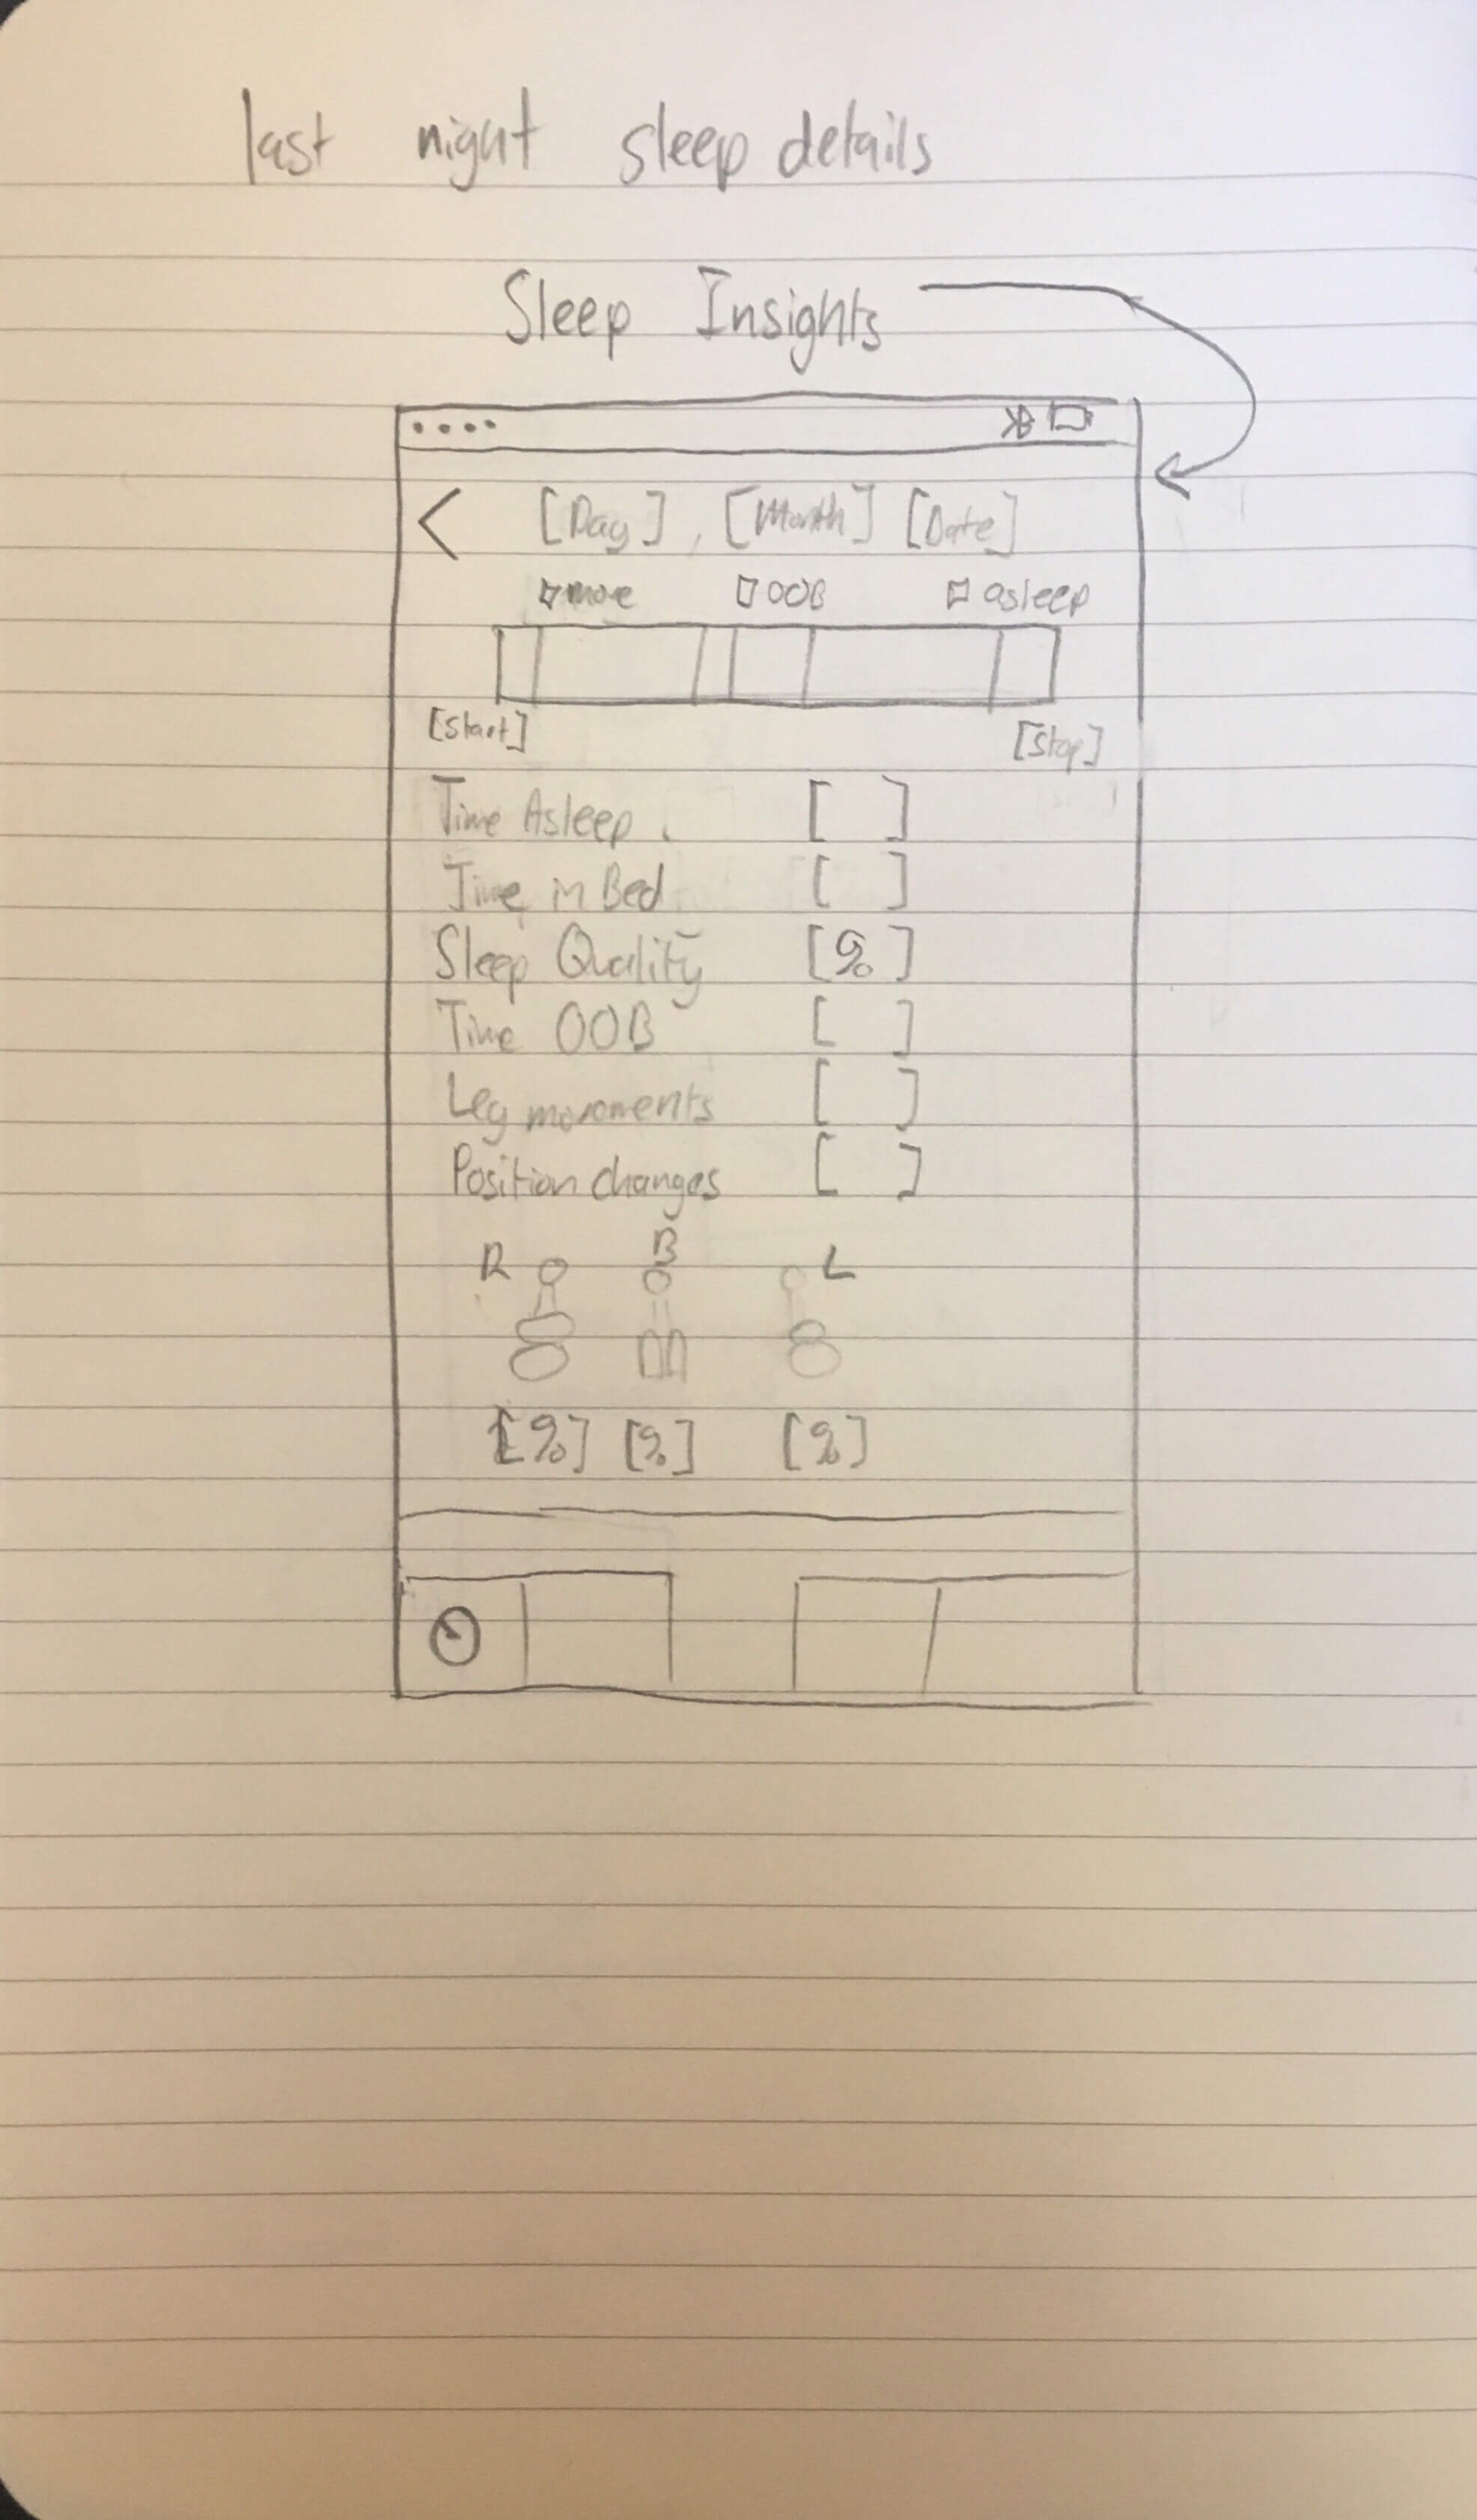 last night sleep details
Sleep Insights
< [Day], [Month] [Date]
move OOB asleep
[Start] [Stop]
Time Asleep. [ ]
Time in Bed [ ]
Sleep Quality [%]
Time OOB [ ]
Leg movements [ ]
Position changes [ ]
R B L
[%] [%] [%]